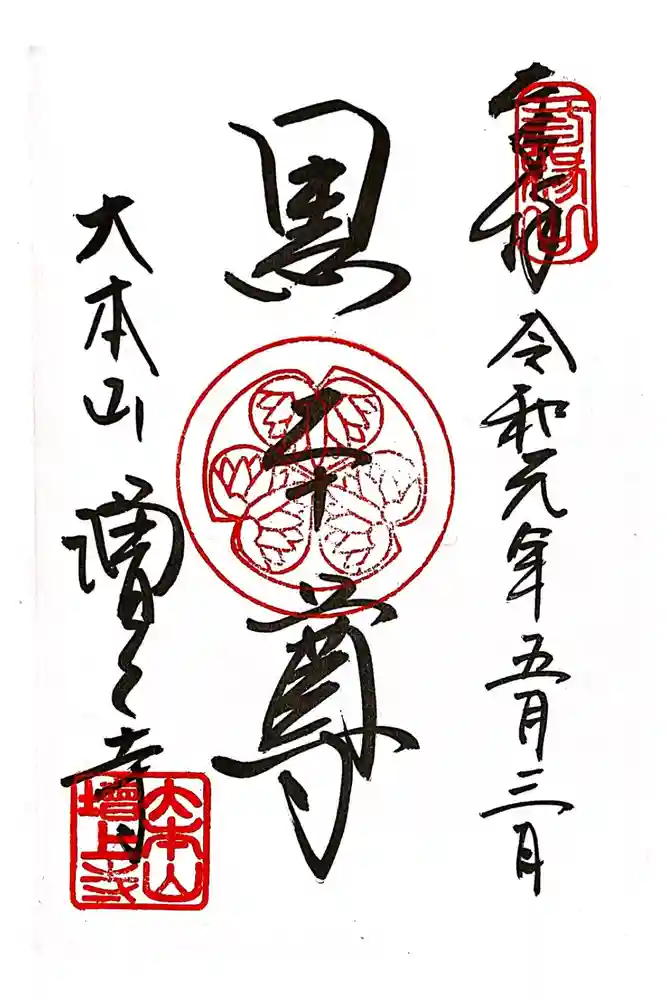 奉拝
三縁山
令和元年五月三日
黒本尊
大本山 増上寺
大本山
增上寺